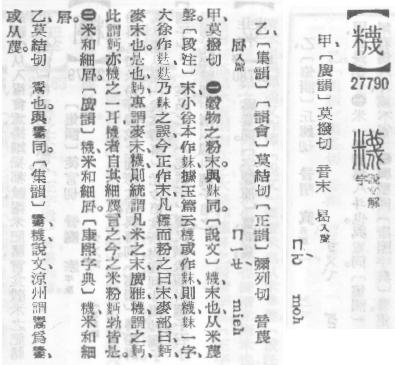 【𥽘】
27790
𥽘 說文解字
甲〔廣韻〕莫撥切 音末 曷入聲
ㄇㄛˋ moh
乙〔集韻〕〔韻會〕莫結切〔正韻〕彌列切 音蔑
屑入聲 ㄇㄧㄝˋ mieh
甲莫撥切 ㊀穀物之粉末與䴲同〔說文〕𥽘末也从米蔑
聲〔段注〕末小徐本作䴲據玉篇云𥽘或作䴲則𥽘䴲一字
大徐作麩麩乃䴲之誤今正作末凡糲而粉之曰末麥部曰麪
麥末也是也麪專謂麥末𥽘則統謂凡米之末廣雅𥽘謂之麪
此謂麪亦𥽘之一耳𥽘者自其細蔑言之今之米粉麪勃皆是
㊁米和細屑〔廣韻〕𥽘米和細屑〔康熙字典〕𥽘米和細
屑
乙莫結切 鬻也與𩱷同〔集韻〕𩱷𥽘說文涼州謂鬻爲𩱷
或从蔑